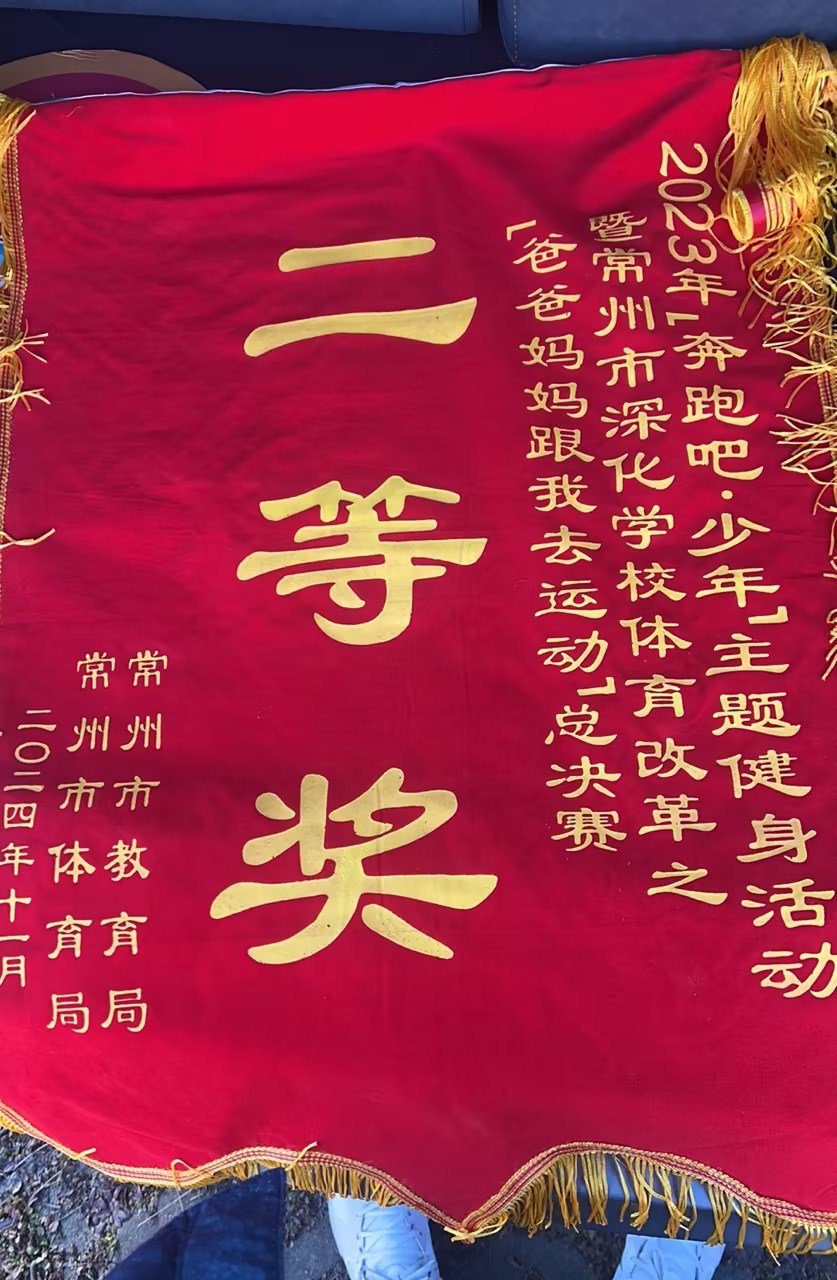 2023年“奔跑吧·少年”主题健身活动
暨常州市深化学校体育改革之
“爸爸妈妈跟我去运动”总决赛
二等奖
常州市教育局
常州市体育局
二〇二四年十一月